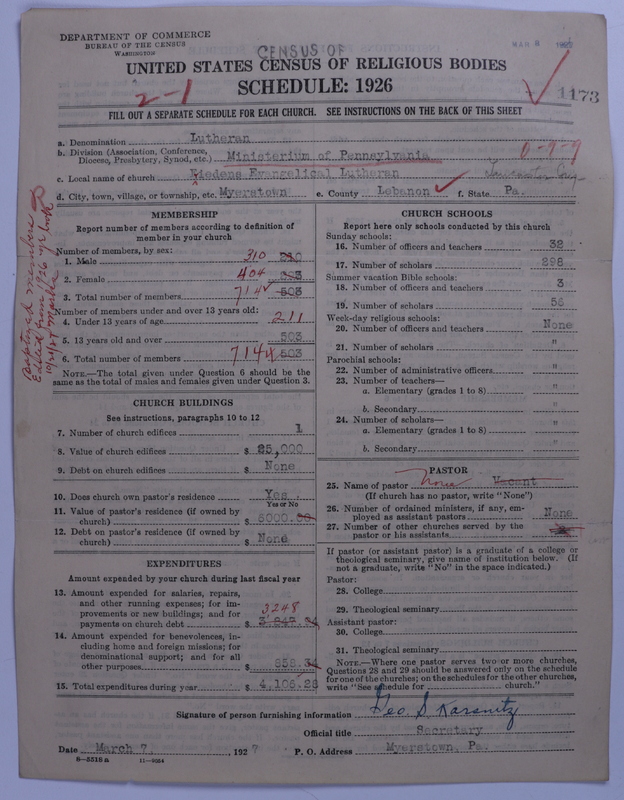 DEPARTMENT OF COMMERCE
BUREAU OF THE CENSUS
WASHINGTON
CENSUS OF
MAR 8 1927
UNITED STATES CENSUS OF RELIGIOUS BODIES
SCHEDULE: 1926
2-1
1173
FILL OUT A SEPARATE SCHEDULE FOR EACH CHURCH. SEE INSTRUCTIONS ON THE BACK OF THIS SHEET
a. Denomination Lutheran
b. Division (Association, Conference, Diocese, Presbytery, Synod, etc.) Ministerium of Pennsylvania
0-9-9
c. Local name of church Friedens Evangelical Lutheran
d. City, town, village, or township, etc. Myerstown e. County Lebanon f. State Pa.
MEMBERSHIP
Report number of members according to definition of member in your church
Number of members, by sex:
1. Male 310 210
2. Female 404 293
3. Total number of members 714 503
Number of members under and over 13 years old:
4. Under 13 years of age 211
5. 13 years old and over 503
6. Total number of members 714 503
NOTE.—The total given under Question 6 should be the same as the total of males and females given under Question 3.
Baptized members
Edited from 1926 yr book
CHURCH BUILDINGS
See instructions, paragraphs 10 to 12
7. Number of church edifices 1
8. Value of church edifices $ 25,000
9. Debt on church edifices $ None
10. Does church own pastor's residence Yes.
Yes or No
11. Value of pastor's residence (if owned by church) $ 5000.00
12. Debt on pastor's residence (if owned by church) $ None
EXPENDITURES
Amount expended by your church during last fiscal year
13. Amount expended for salaries, repairs, and other running expenses; for improvements or new buildings; and for payments on church debt $ 3248
14. Amount expended for benevolences, including home and foreign missions; for denominational support; and for all other purposes $ 858.
15. Total expenditures during year $ 4,106.28
CHURCH SCHOOLS
Report here only schools conducted by this church
Sunday schools:
16. Number of officers and teachers 32
17. Number of scholars 298
Summer vacation Bible schools:
18. Number of officers and teachers 3
19. Number of scholars 56
Week-day religious schools:
20. Number of officers and teachers None
21. Number of scholars "
Parochial schools:
22. Number of administrative officers "
23. Number of teachers—
a. Elementary (grades 1 to 8) "
b. Secondary "
24. Number of scholars—
a. Elementary (grades 1 to 8) "
b. Secondary "
PASTOR
25. Name of pastor None Vacant
(If church has no pastor, write "None")
26. Number of ordained ministers, if any, employed as assistant pastors None
27. Number of other churches served by the pastor or his assistants
If pastor (or assistant pastor) is a graduate of a college or theological seminary, give name of institution below. (If not a graduate, write "No" in the space indicated.)
Pastor:
28. College
29. Theological seminary
Assistant pastor:
30. College
31. Theological seminary
NOTE.—Where one pastor serves two or more churches, Questions 28 and 29 should be answered only on the schedule for one of the churches; on the schedules for the other churches, write "See schedule for church."
Signature of person furnishing information Geo. S Karsnitz
Official title Secretary
Date March 7, 1927 P. O. Address Myerstown, Pa.
8—5518 a 11—9054